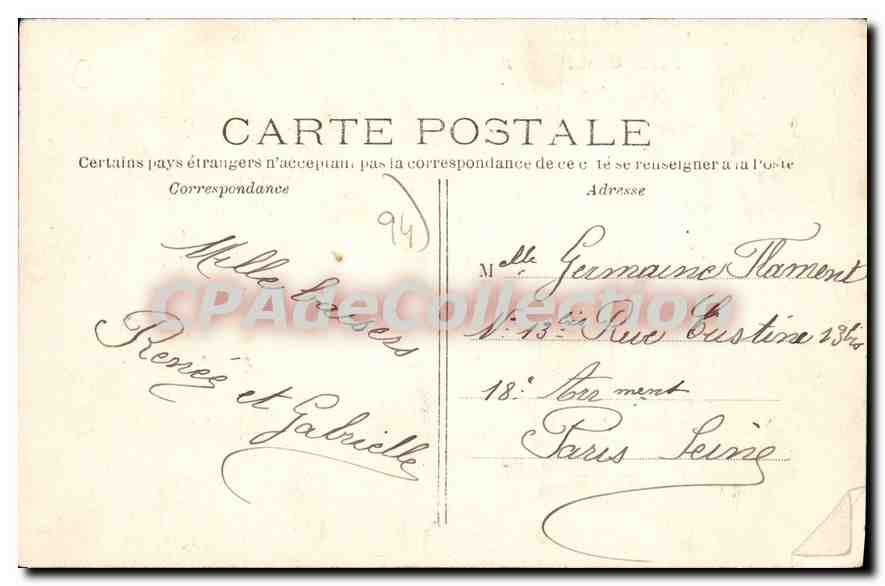 CARTE POSTALE
Certains pays étrangers n'acceptant pas la correspondance de ce c té se renseigner à la Poste
Correspondance
Adresse
94
Mille baisers
Renée et Gabrielle
Melle Germaine Flament
N° 13 bis Rue Custine 13 bis
18e Arr ment
Paris Seine
CPAdeCollection